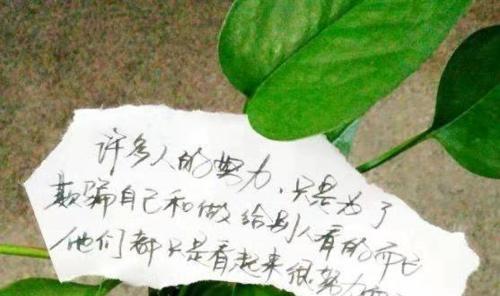 许多人的努力，只是为了
欺骗自己和做给别人看的而已
他们都只是看起来很努力